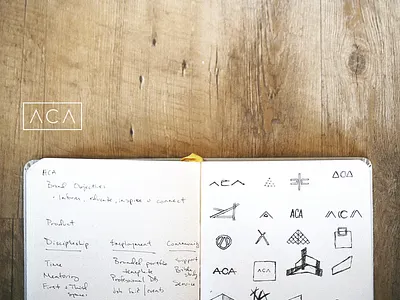 ACA
ACA
Brand Objectives
• Inform, educate, inspire + connect
Product
Discipleship Employment Community
Time Branded portfolio support
Mentoring template Bible study
First + Third Professional Dev Service
spaces Job fair events
ACA
AOA
ACA
ACA
ACA
ACA